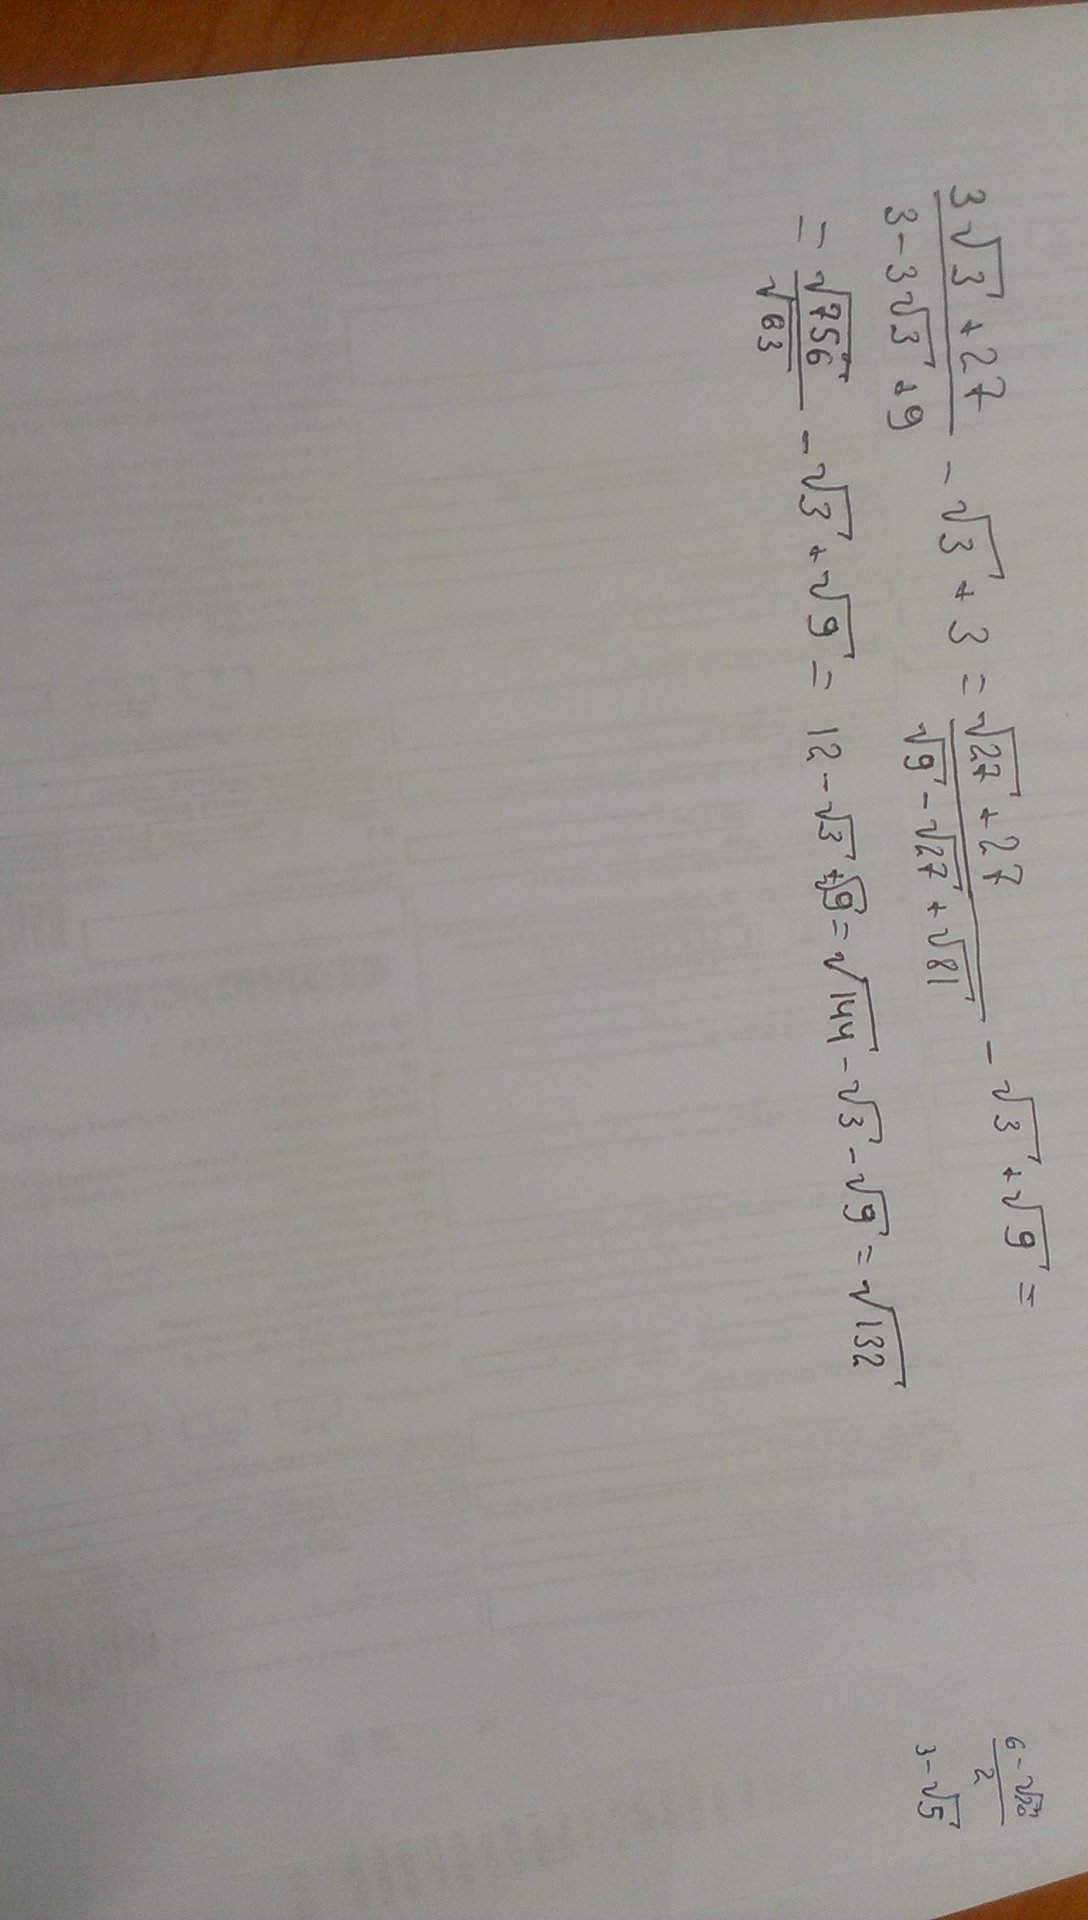 3√3 + 27 / 3 - 3√3 + 9 - √3 + 3 = √27 + 27 / √9 - √27 + √81 - √3 + √9 =
= √756 / √63 - √3 + √9 = 12 - √3 + √9 = √144 - √3 - √9 = √132
6 - √20 / 2
3 - √5